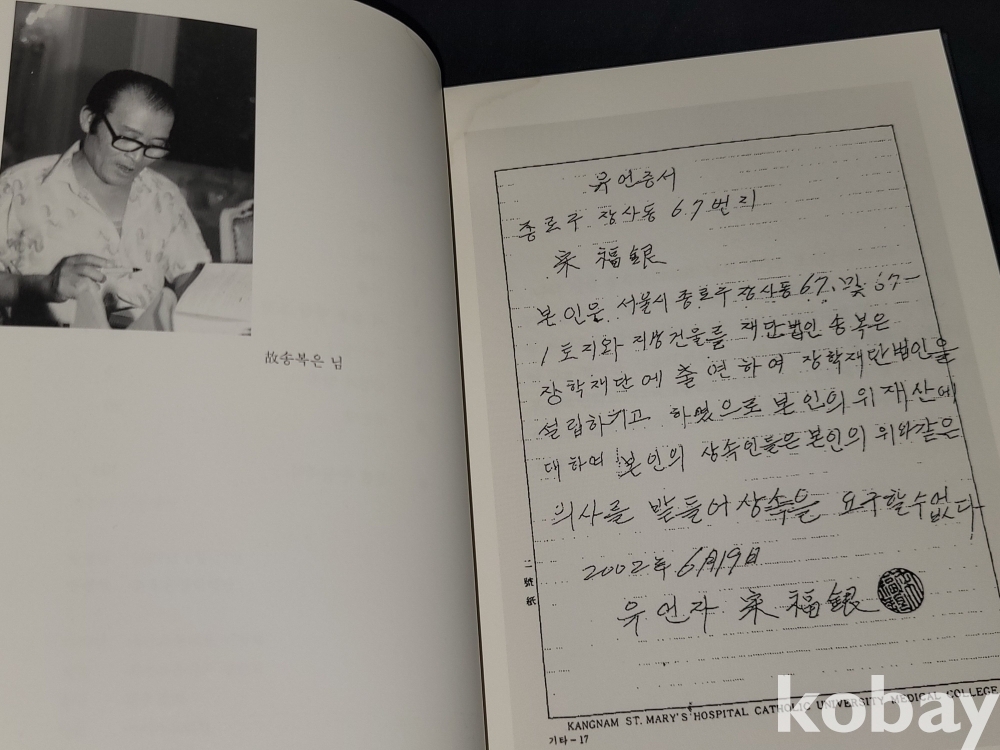 故송복은 님
유언증서
종로구 장사동 67번지
宋福銀
본인은 서울시 종로구 장사동 67. 및 67-
1 토지와 지상건물를 재단법인 송복은
장학재단에 출연하여 장학재단법인을
설립하기고 하였으로 본인의 위 재산에
대하여 본인의 상속인들은 본인의 위와같은
의사를 받들어 상속을 요구할 수 없다
2002年 6月19日
유언자 宋福銀
二號紙
KANGNAM ST. MARY'S HOSPITAL CATHOLIC UNIVERSITY MEDICAL COLLEGE
기타-17
kobay